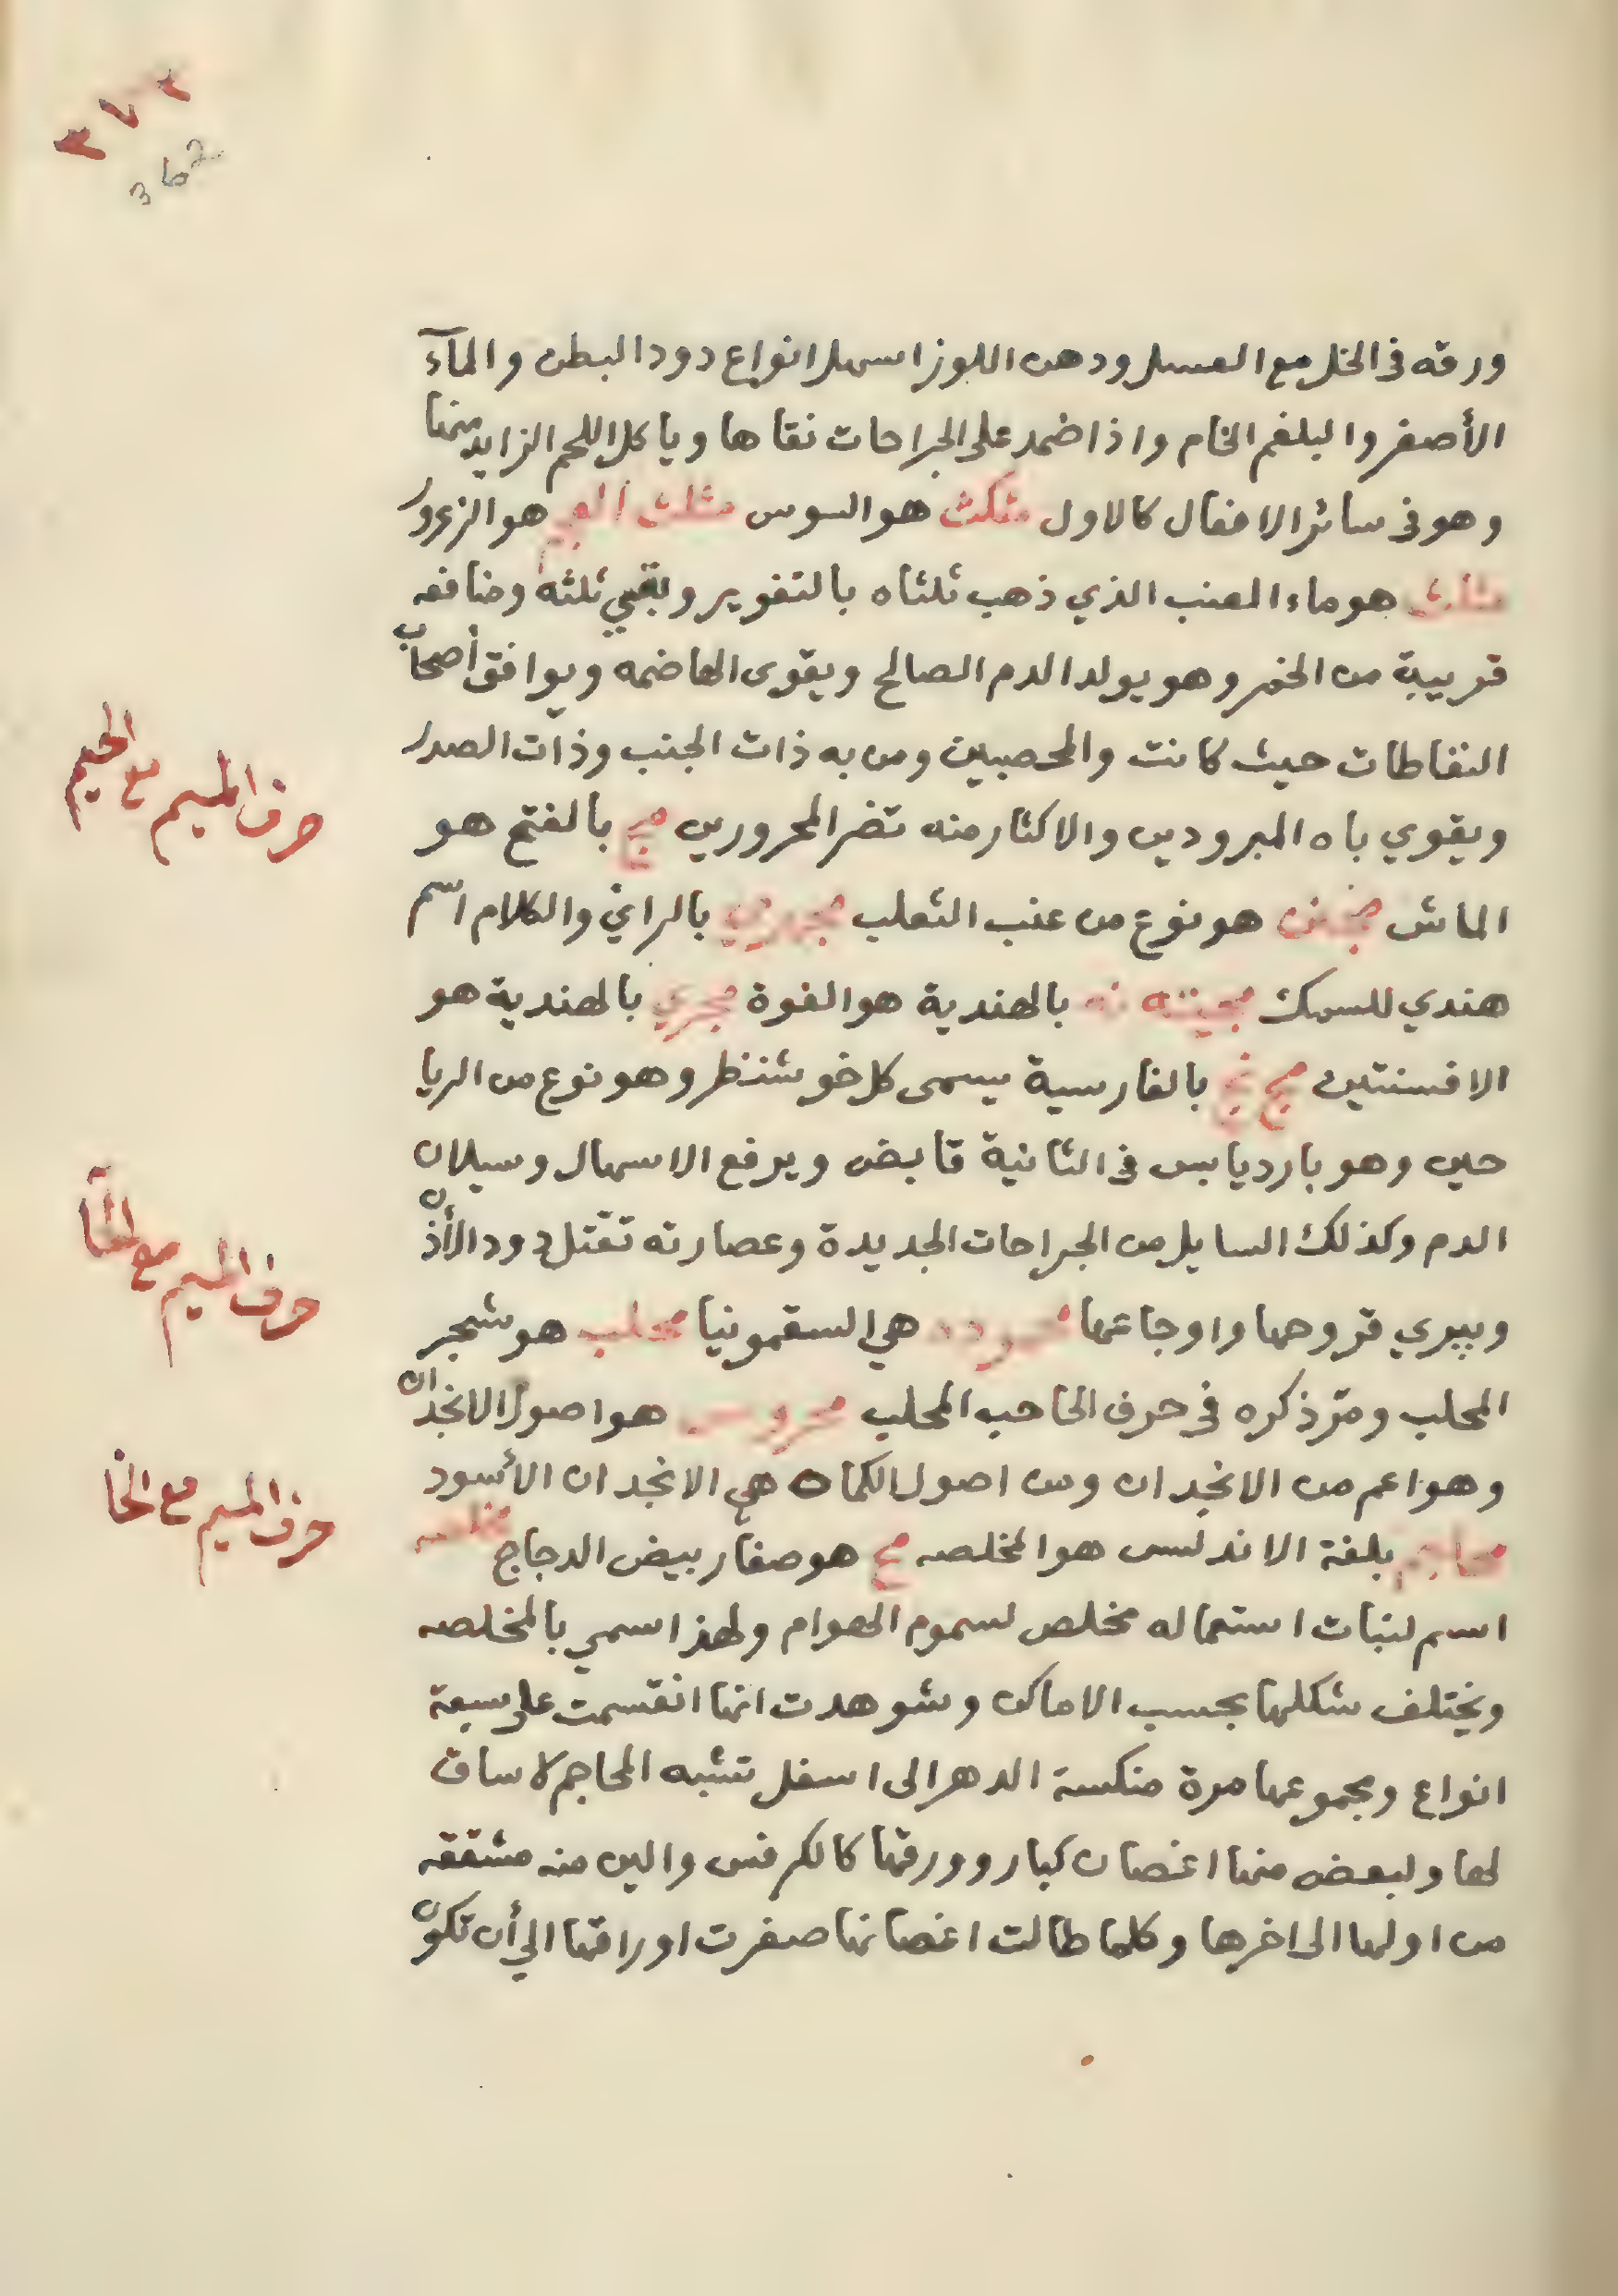 ٣٧٢
362
ورقه في الخل مع العسل ودهن اللوز اسهل انواع دود البطن والمآء
الأصفر والبلغم الخام واذا ضمد على الجراحات نقاها وياكل اللحم الزايد منها
وهو في سائر الافعال كالاول مثلث هو السوس مثلث العجم هو الزعرور
مثلث هو ماء العنب الذي ذهب ثلثاه بالتغوير وبقي ثلثه ومنافعه
قريبة من الخمر وهو يولد الدم الصالح ويقوى الهاضمه ويوافق أصحاب
النفاطات حيث كانت والمحصبين ومن به ذات الجنب وذات الصدر
ويقوي باه المبرودين والاكثار منه تضر المحرورين مج بالفتح هو
حرف الميم مع الجيم
الماش هو نوع من عنب الثعلب بالراي والكلام اسم
هندي للسمك بالهندية هو الفوة بالهندية هو
الافسنتين بالفارسية يسمى كل خوشنظر وهو نوع من الريا
حين وهو بارد يابس في الثانية قابض ويرفع الاسهال وسيلان
الدم وكذلك السايل من الجراحات الجديدة وعصارته تقتل دود الأذن
حرف الميم مع الحآ
ويبري قروحها واوجاعها محموده هي السقمونيا محلب هو شجر
المحلب ومر ذكره في حرف الحا حب المحلب محروس هو اصول الانجدان
وهو اعم من الانجدان ومن اصول الكماه هي الانجدان الأسود
حرف الميم مع الخا
محاجم بلغة الاندلس هو المخلصه مح هو صفار بيض الدجاج مخلصه
اسم لنبات استعماله مخلص لسموم الهوام ولهذا سمي بالمخلصه
ويختلف شكلها بحسب الاماكن وشوهدت انها انقسمت على سبعة
انواع ومجموعها مرة منكسة الدهر الى اسفل تشبه المحاجم لا ساق
لها ولبعض منها اغصان كبار وورقها كالكرفس والين منه مشققه
من اولها الى اخرها وكلما طالت اغصانها صغرت اوراقها الي أن تكون